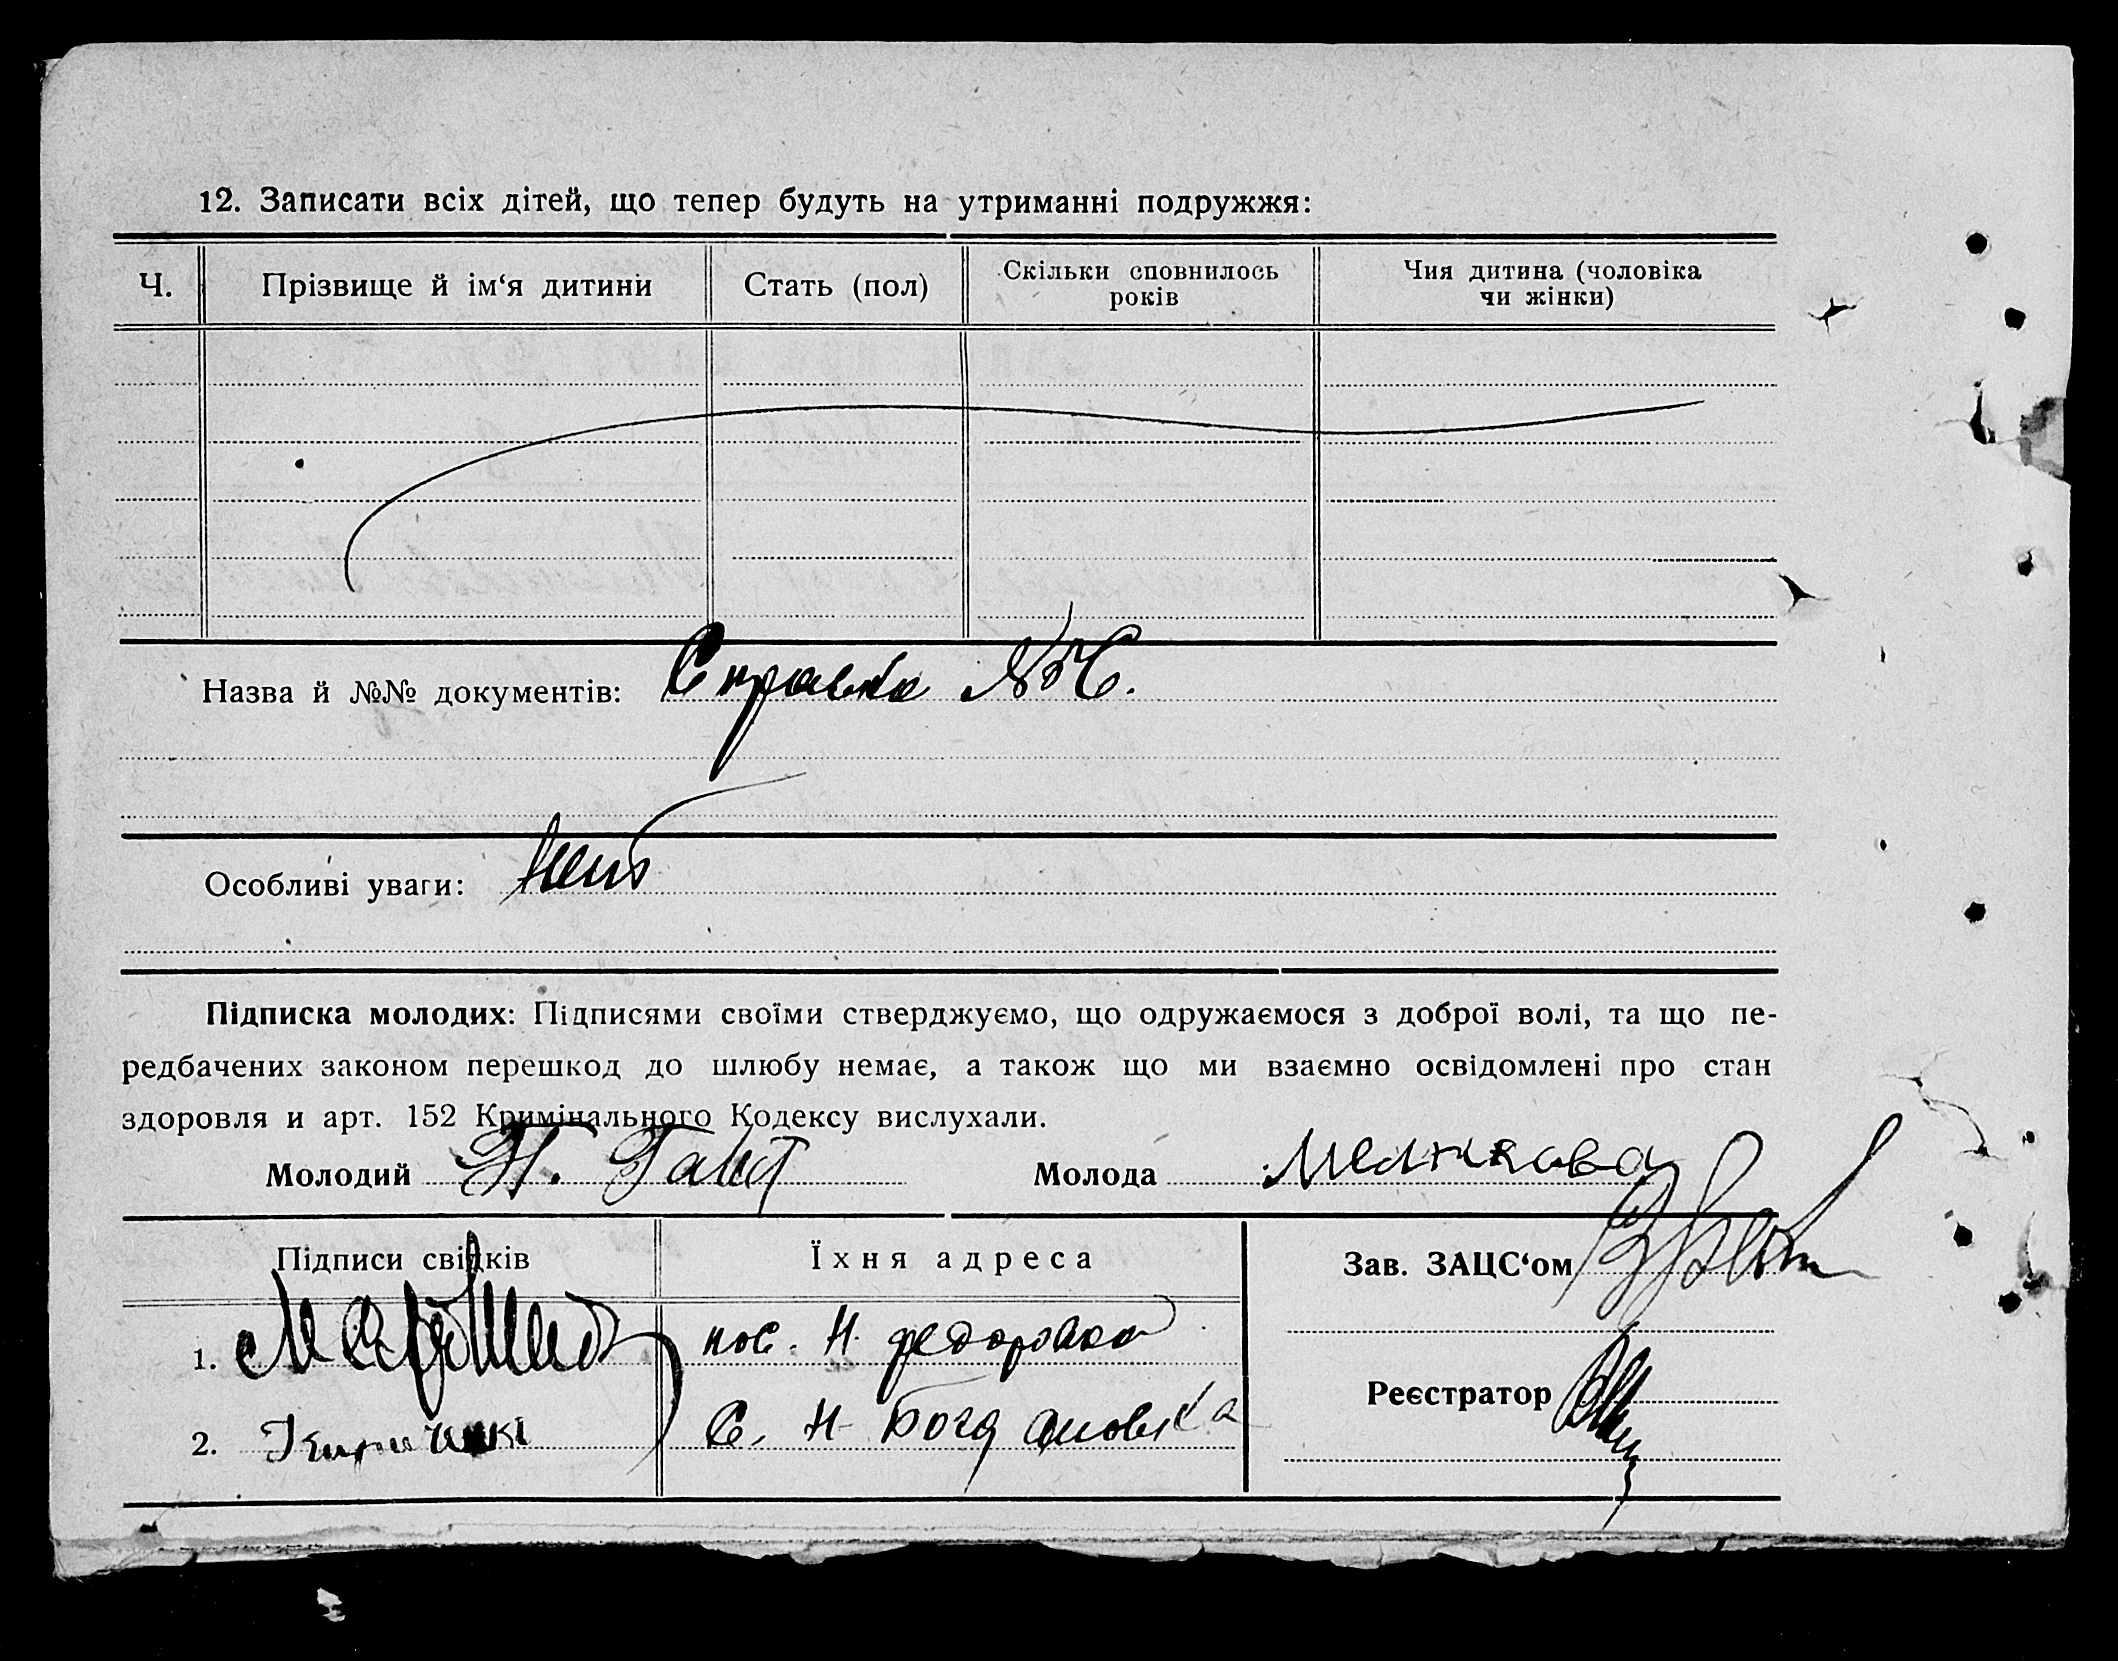 12. Записати всіх дітей, що тепер будуть на утриманні подружжя:
Ч. Прізвище й ім‘я дитини Стать (пол) Скільки сповнилось років Чия дитина (чоловіка чи жінки)
Назва й №№ документів: Справка
Особливі уваги: Нет
Підписка молодих: Підписями своїми стверджуємо, що одружаємося з доброї волі, та що пе-
редбачених законом перешкод до шлюбу немає, а також що ми взаємно освідомлені про стан
здоровля и арт. 152 Кримінального Кодексу вислухали.
Молодий Молода
Підписи свідків Їхня адреса Зав. ЗАЦС‘ом
1. пос. Н. Федоровка
Реєстратор
2. С. Н-Богдановка